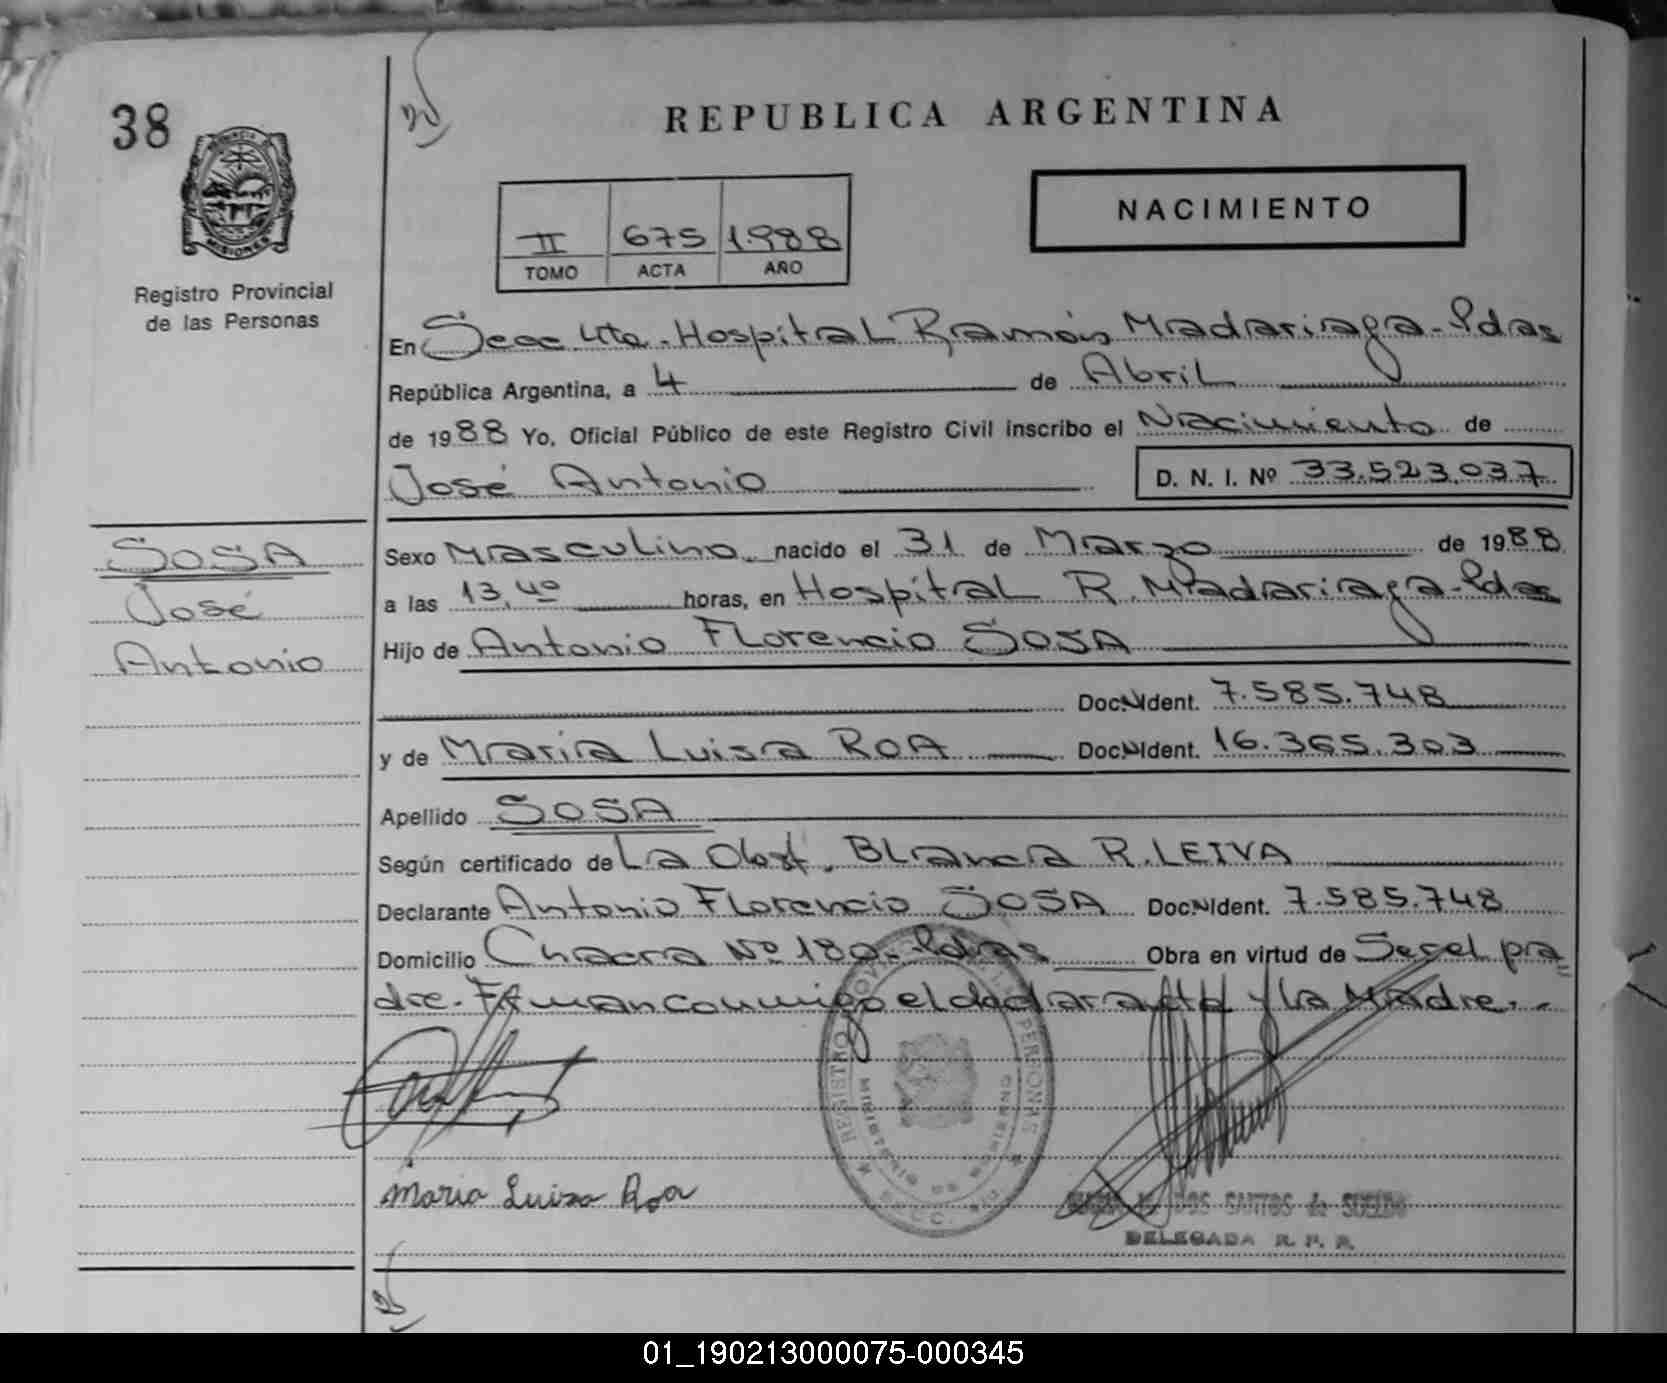 38
REPUBLICA ARGENTINA
NACIMIENTO
II 675 1.988
TOMO ACTA AÑO
MISIONES
Registro Provincial
de las Personas
En Secc 4ta. Hospital Ramón Madariaga - Pdas
República Argentina, a 4 de Abril
de 1988 Yo, Oficial Público de este Registro Civil inscribo el Nacimiento de
José Antonio D. N. I. Nº 33.523.037
SOSA
José
Antonio
Sexo Masculino nacido el 31 de Marzo de 1988
a las 13,40 horas, en Hospital R. Madariaga - Pdas
Hijo de Antonio Florencio SOSA
Doc.N.Ident. 7.585.748
y de María Luisa ROA Doc.N.Ident. 16.365.303
Apellido SOSA
Según certificado de La Obst. Blanca R. LEIVA
Declarante Antonio Florencio SOSA Doc.N.Ident. 7.585.748
Domicilio Chacra Nº 180 - Pdas Obra en virtud de Ser el pa
dre. Firman conmigo el declarante y la Madre. -
REGISTRO PERSONAS
MINISTERIO DE GOBIERNO
Maria Luisa Roa
DOS SANTOS de SUELDO
DELEGADA R. P. P.
01_190213000075-000345